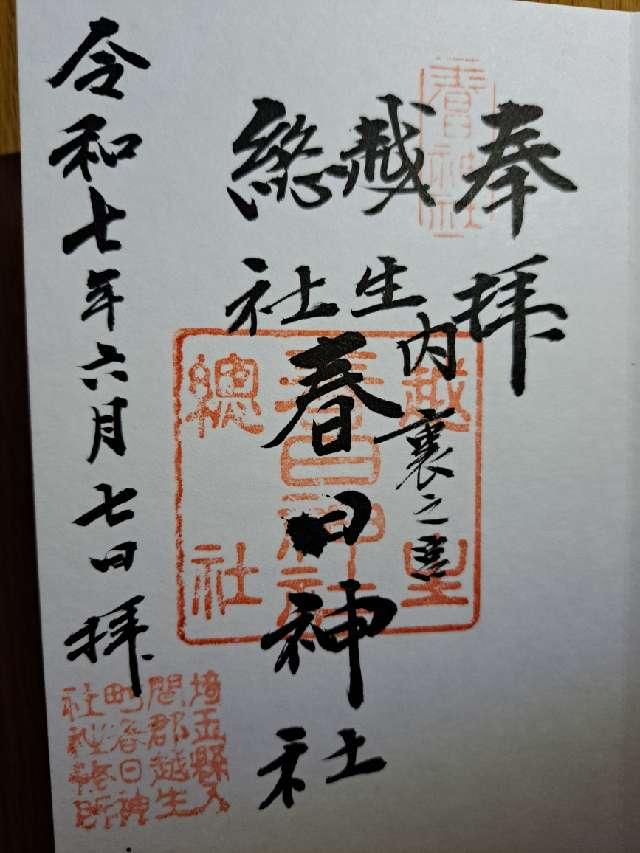 奉拝
春日神社
越生
總社
内裏之宮
春日神社
越生
春日神社
總社
令和七年六月七日拝
埼玉縣入
間郡越生
町春日神
社社務所